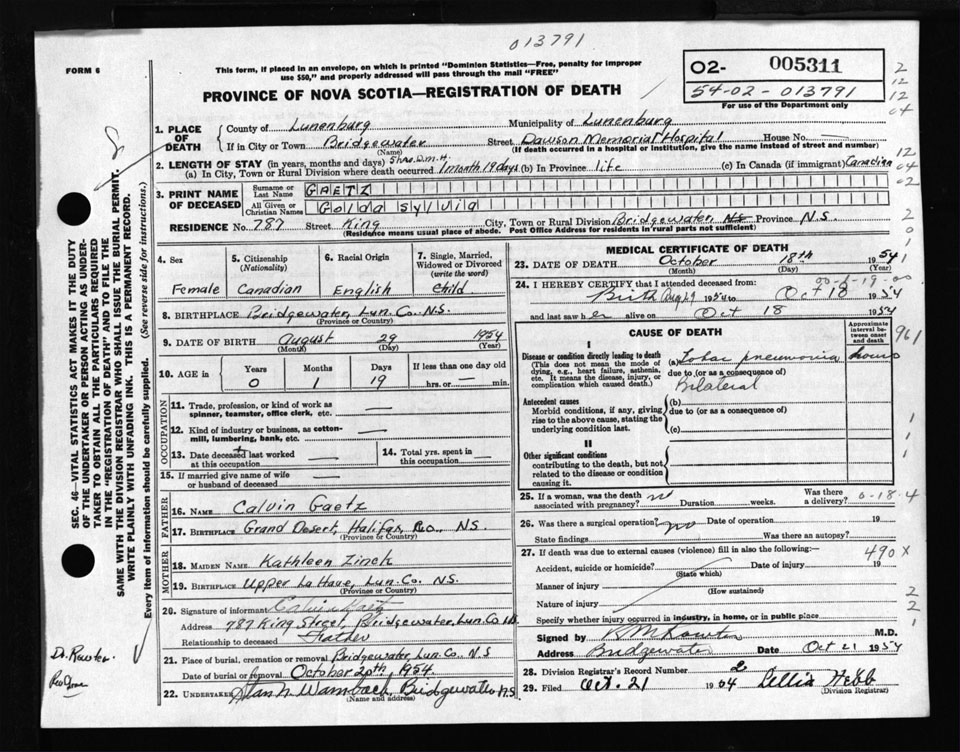 013791
FORM 6
This form, if placed in an envelope, on which is printed "Dominion Statistics—Free, penalty for improper
use $50," and properly addressed will pass through the mail "FREE"
O2- 005311
54-02-013791
For use of the Department only
PROVINCE OF NOVA SCOTIA—REGISTRATION OF DEATH
2
12
12
04
12
04
02
2
0
1
1
SEC. 46—VITAL STATISTICS ACT MAKES IT THE DUTY
OF THE UNDERTAKER OR PERSON ACTING AS UNDER-
TAKER TO OBTAIN ALL THE PARTICULARS REQUIRED
IN THE "REGISTRATION OF DEATH" AND TO FILE THE
SAME WITH THE DIVISION REGISTRAR WHO SHALL ISSUE THE BURIAL PERMIT.
WRITE PLAINLY WITH UNFADING INK. THIS IS A PERMANENT RECORD.
Every item of information should be carefully supplied. (See reverse side for instructions.)
1. PLACE OF DEATH
County of Lunenburg Municipality of Lunenburg
If in City or Town Bridgewater Street Dawson Memorial Hospital House No. —
(Name) (If death occurred in a hospital or institution, give the name instead of street and number)
2. LENGTH OF STAY (in years, months and days) 5hrs. D.M.H.
(a) In City, Town or Rural Division where death occurred 1 month 19 days (b) In Province life (c) In Canada (if immigrant) Canadian
3. PRINT NAME OF DECEASED
Surname or Last Name GAETZ
All Given or Christian Names Golda Sylvia
RESIDENCE No. 787 Street King City, Town or Rural Division Bridgewater, NS Province N.S.
(Residence means usual place of abode. Post Office Address for residents in rural parts not sufficient)
4. Sex
Female
5. Citizenship (Nationality)
Canadian
6. Racial Origin
English
7. Single, Married, Widowed or Divorced (write the word)
Child
8. BIRTHPLACE Bridgewater, Lun. Co. N.S.
(Province or Country)
9. DATE OF BIRTH August 29 1954
(Month) (Day) (Year)
10. AGE in
Years Months Days If less than one day old
0 1 19 hrs. or — min.
OCCUPATION
11. Trade, profession, or kind of work as spinner, teamster, office clerk, etc. —
12. Kind of industry or business, as cotton-mill, lumbering, bank, etc. —
13. Date deceased last worked at this occupation —
14. Total yrs. spent in this occupation —
15. If married give name of wife or husband of deceased —
FATHER
16. NAME Calvin Gaetz
17. BIRTHPLACE Grand Desert, Halifax, Co. N.S.
(Province or Country)
MOTHER
18. MAIDEN NAME Kathleen Zinck
19. BIRTHPLACE Upper La Have, Lun. Co. N.S.
(Province or Country)
20. Signature of informant Calvin Gaetz
Address 787 King Street, Bridgewater, Lun. Co. N.S.
Relationship to deceased Father
21. Place of burial, cremation or removal Bridgewater, Lun. Co., N.S
Date of burial or removal October 20th, 1954.
22. Undertaker Bridgewater N.S
(Name and address)
MEDICAL CERTIFICATE OF DEATH
23. DATE OF DEATH October 18th 1954
(Month) (Day) (Year)
24. I HEREBY CERTIFY that I attended deceased from:
Birth Aug 29 1954 to Oct 18 1954
and last saw her alive on Oct 18 1954
CAUSE OF DEATH
Approximate interval between onset and death
961
I
Disease or condition directly leading to death
(This does not mean the mode of dying, e.g., heart failure, asthenia, etc. It means the disease, injury, or complication which caused death.)
(a) Lobar pneumonia hours
due to (or as a consequence of)
Bilateral
Antecedent causes
Morbid conditions, if any, giving rise to the above cause, stating the underlying condition last.
(b)
due to (or as a consequence of)
(c)
II
Other significant conditions
contributing to the death, but not related to the disease or condition causing it.
1
1
1
25. If a woman, was the death associated with pregnancy? Duration weeks. Was there a delivery?
0-18-4
26. Was there a surgical operation? no Date of operation 19
State findings Was there an autopsy?
27. If death was due to external causes (violence) fill in also the following:
490 X
Accident, suicide or homicide? Date of injury 19
(State which)
Manner of injury
(How sustained)
Nature of injury
2
2
1
Specify whether injury occurred in industry, in home, or in public place
Signed by M.D.
Address Bridgewater Date Oct 21 1954
28. Division Registrar's Record Number 2
29. Filed Oct. 21 1954 Webb
(Division Registrar)